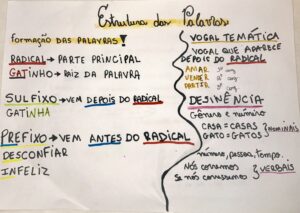 Estrutura das Palavras
FORMAÇÃO DAS PALAVRAS!
RADICAL → PARTE PRINCIPAL
GATINHO → RAIZ DA PALAVRA
SULFIXO → VEM DEPOIS DO RADICAL
GATINHA
PREFIXO → VEM ANTES DO RADICAL
DESCONFIAR
INFELIZ
VOGAL TEMÁTICA
VOGAL QUE APARECE
DEPOIS DO RADICAL
AMAR 1ª conj
VENDER 2ª conj
PARTIR 3ª conj
DESINÊNCIA
Gênero e número
CASA = CASAS
GATO = GATOS } NOMINAIS
número, pessoa, tempo.
Nós corremos
Se nós corrêssemos } VERBAIS